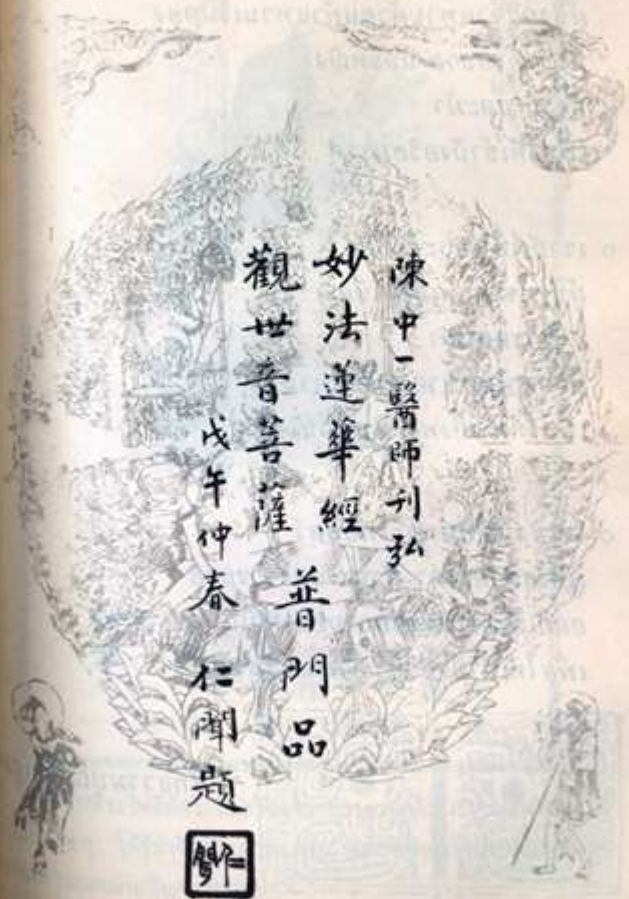 陳中一醫師刊弘
妙法蓮華經
觀世音菩薩
普門品
戊午仲春 仁聞題